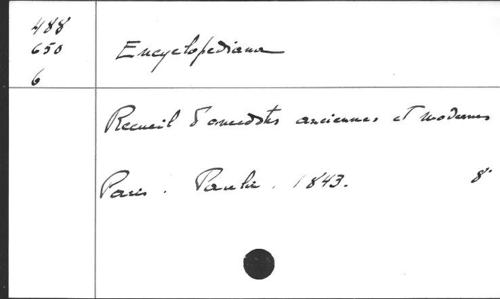 488
650
6
Encyclopediana
Recueil d'anecdotes anciennes et modernes
Paris. Paulin. 1843. 8°